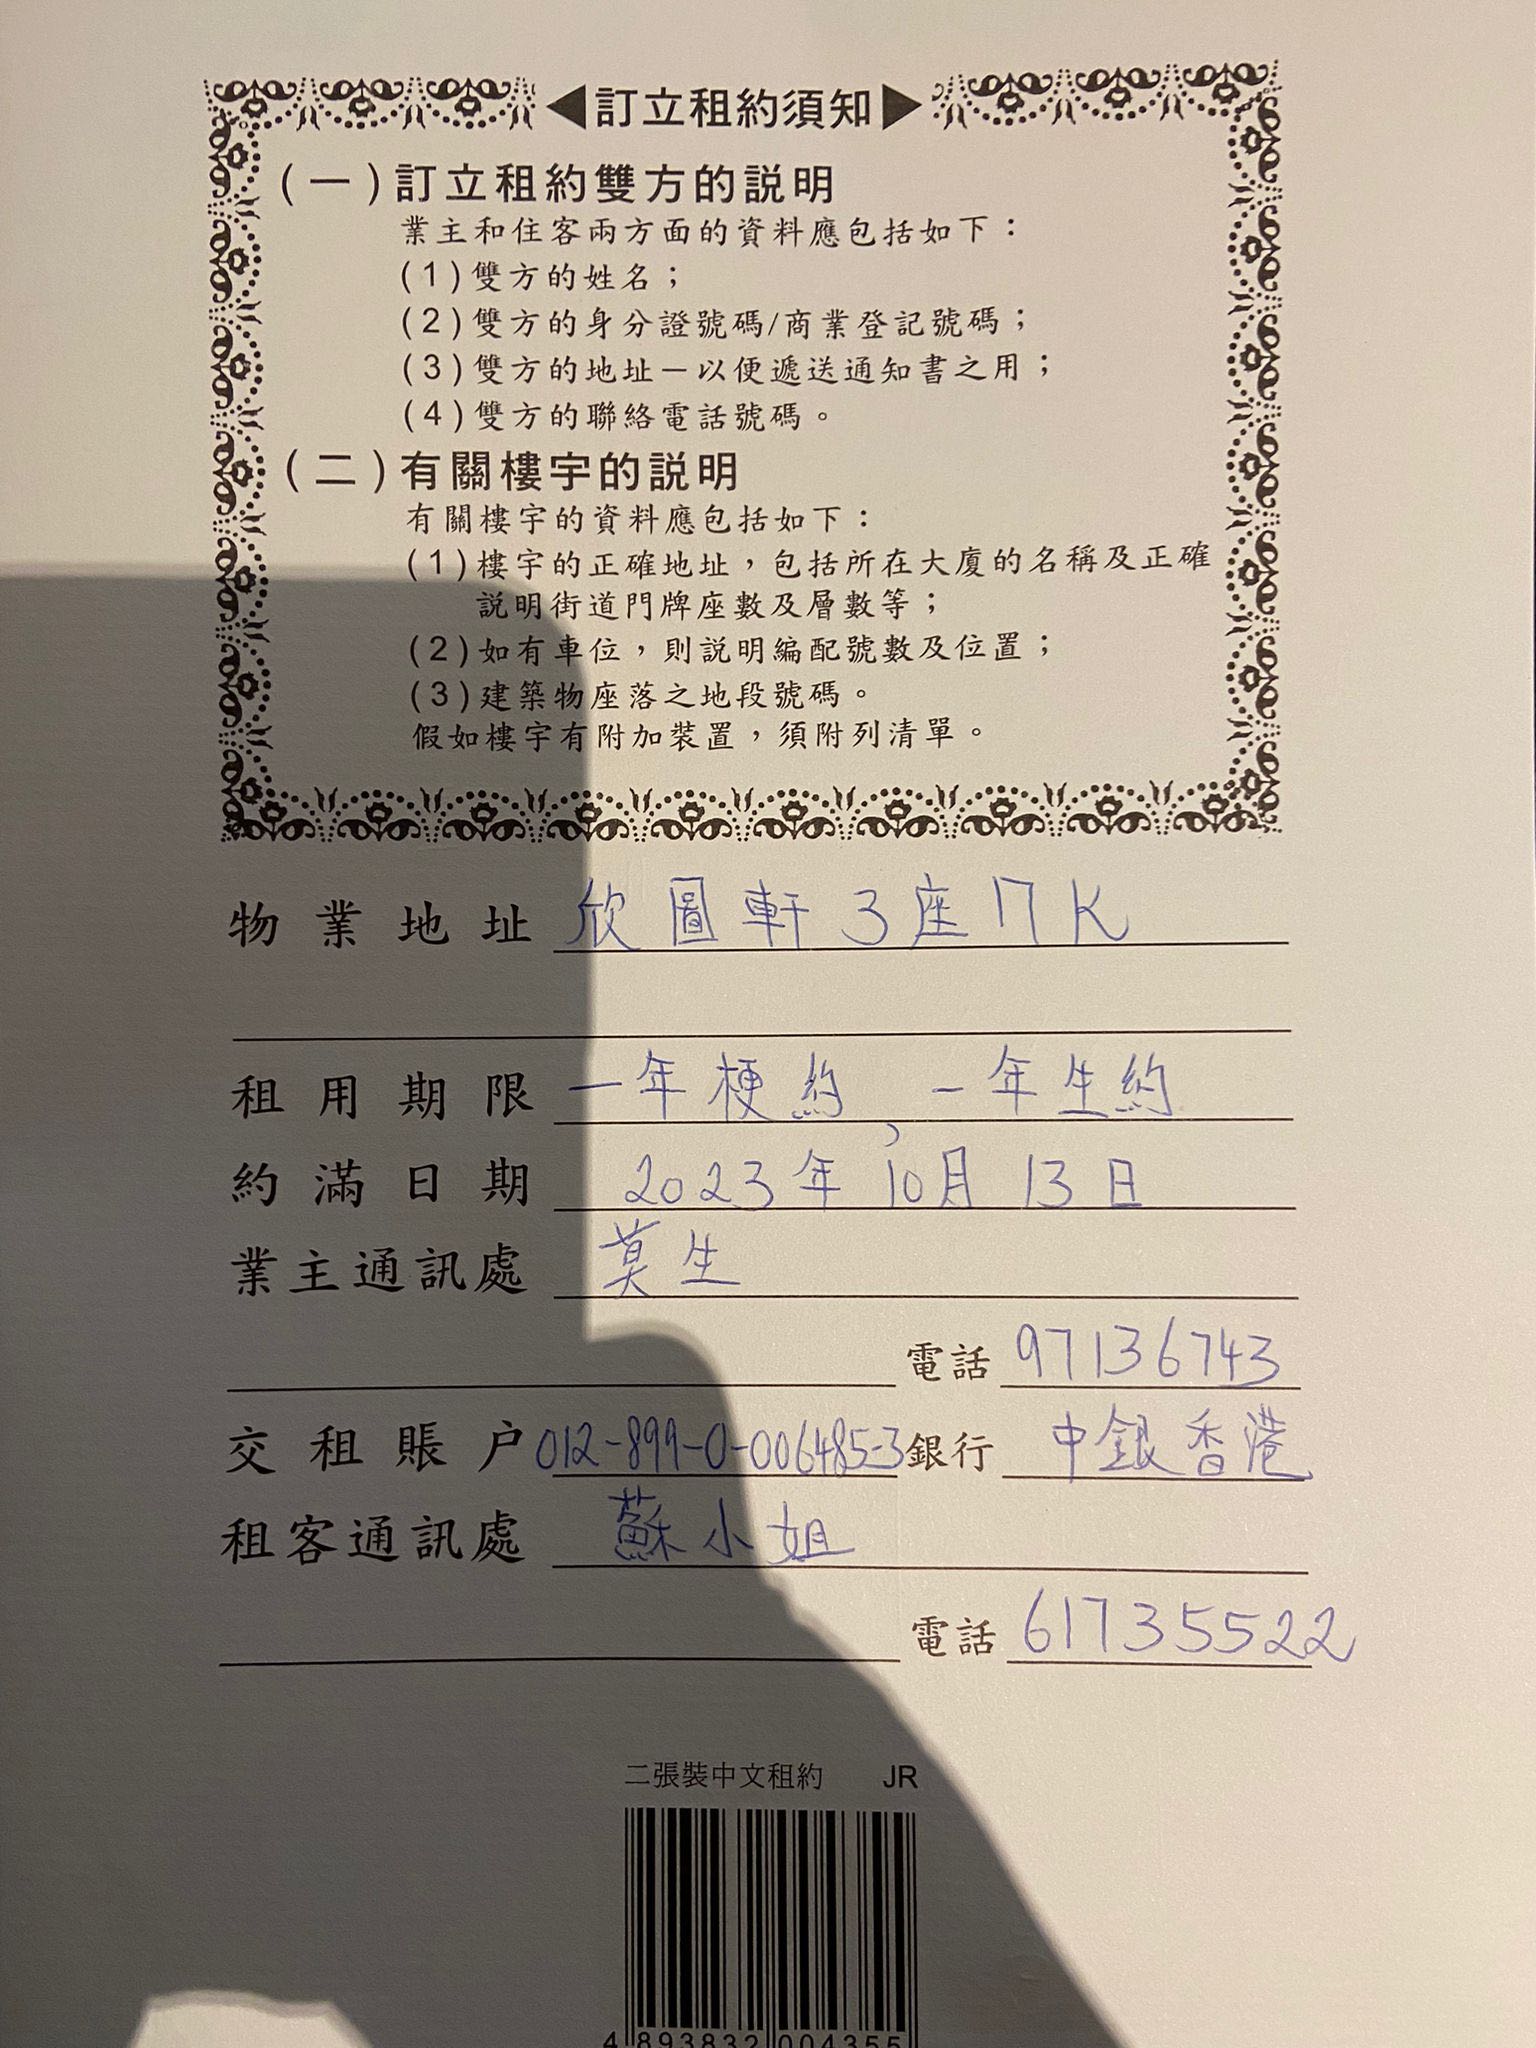 ◀訂立租約須知▶
(一)訂立租約雙方的説明
業主和住客兩方面的資料應包括如下：
(1)雙方的姓名；
(2)雙方的身分證號碼/商業登記號碼；
(3)雙方的地址－以便遞送通知書之用；
(4)雙方的聯絡電話號碼。
(二)有關樓宇的説明
有關樓宇的資料應包括如下：
(1)樓宇的正確地址，包括所在大廈的名稱及正確
説明街道門牌座數及層數等；
(2)如有車位，則説明編配號數及位置；
(3)建築物座落之地段號碼。
假如樓宇有附加裝置，須附列清單。
物業地址 欣圖軒3座17K
租用期限 一年梗約，一年生約
約滿日期 2023年10月13日
業主通訊處 莫生
電話 97136743
交租賬户 012-899-0-006485-3 銀行 中銀香港
租客通訊處 蘇小姐
電話 61735522
二張裝中文租約 JR
4 893832 004355